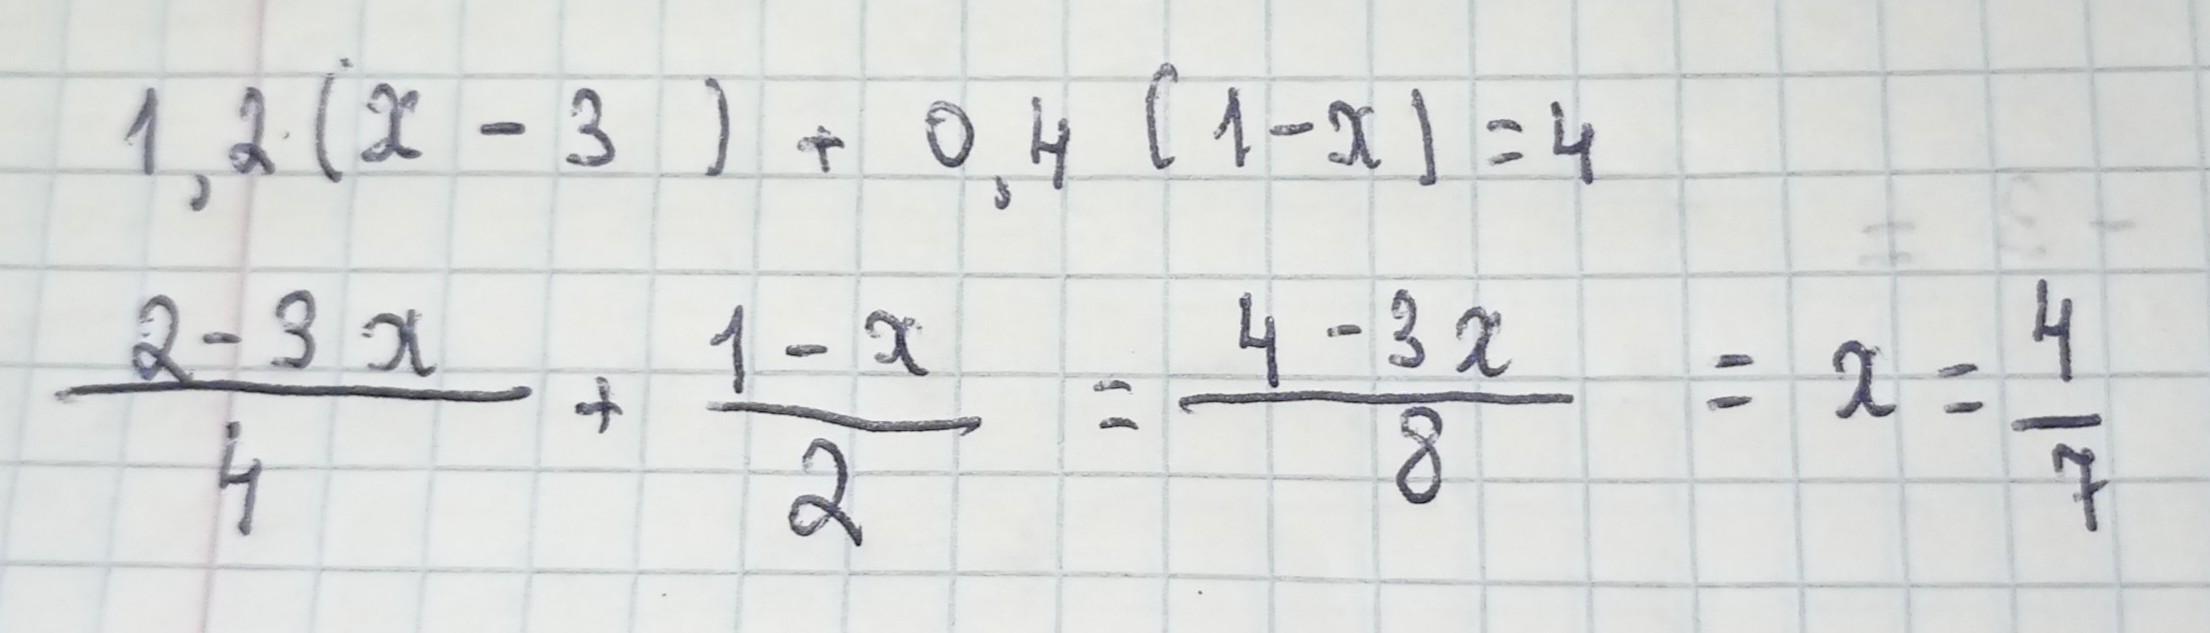 1,2(x - 3) + 0,4 (1-x) = 4
\frac{2-3x}{4} + \frac{1-x}{2} = \frac{4-3x}{8} = x = \frac{4}{7}